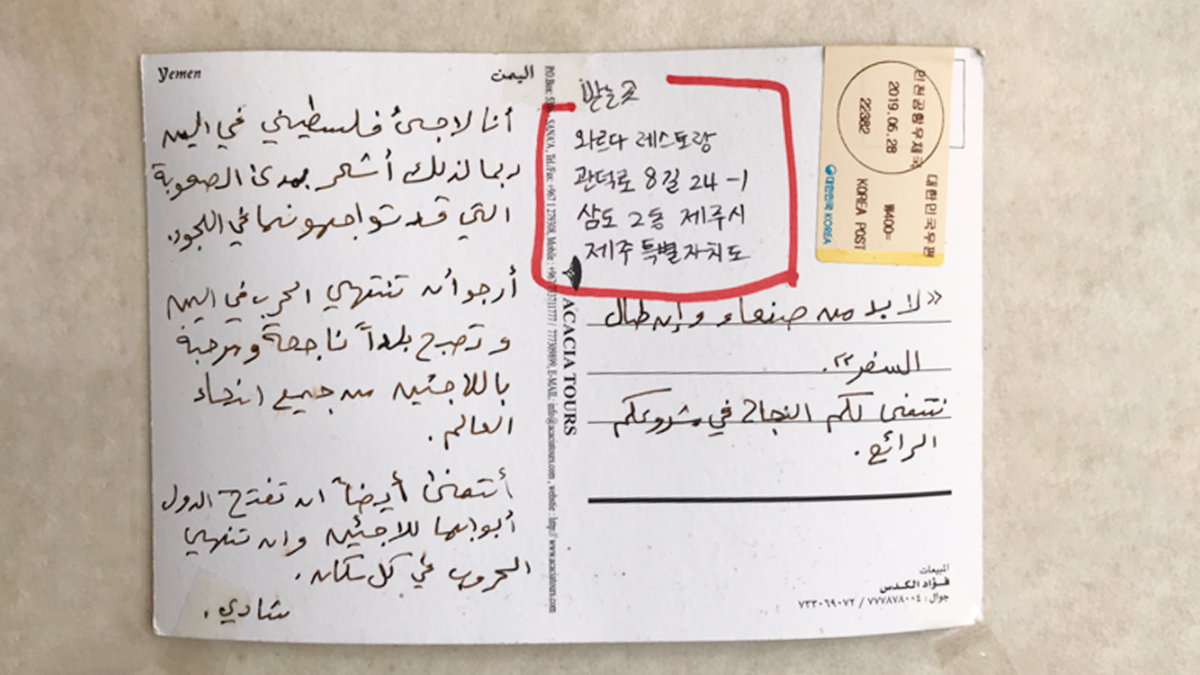 Yemen
اليمن
أنا لاجئ فلسطيني في اليمن
ربما لذلك أشعر بمدى الصعوبة
التي قد تواجهونها في اللجوء.
أرجو أن تنتهي الحرب في اليمن
وتصبح بلداً ناجحة ومرحبة
باللاجئين من جميع انحاء
العالم.
أتمنى أيضاً ان تفتح الدول
أبوابها للاجئين وان تنتهي
الحروب في كل مكان.
شادي.
SANA'A, Tel/Fax: +967 1 279308, Mobile: 777309899, E-MAIL: info@acaciatours.com, website: http://www.acaciatours.com
ACACIA TOURS
받는곳
와르다 레스토랑
관덕로 8길 24-1
삼도 2동 제주시
제주특별자치도
인천공항우체국
2019.06.28
22382
대한민국우편
₩400=
KOREA POST
대한민국 KOREA
«لا بد من صنعاء وإن طال
السفر».
نتمنى لكم النجاح في مشروعكم
الرائع.
المبيعات
فؤاد الكدس
جوال: ٧٧٧٨٧٨٠٠٤ / ٧٣٣٠٦٩٠٧٢